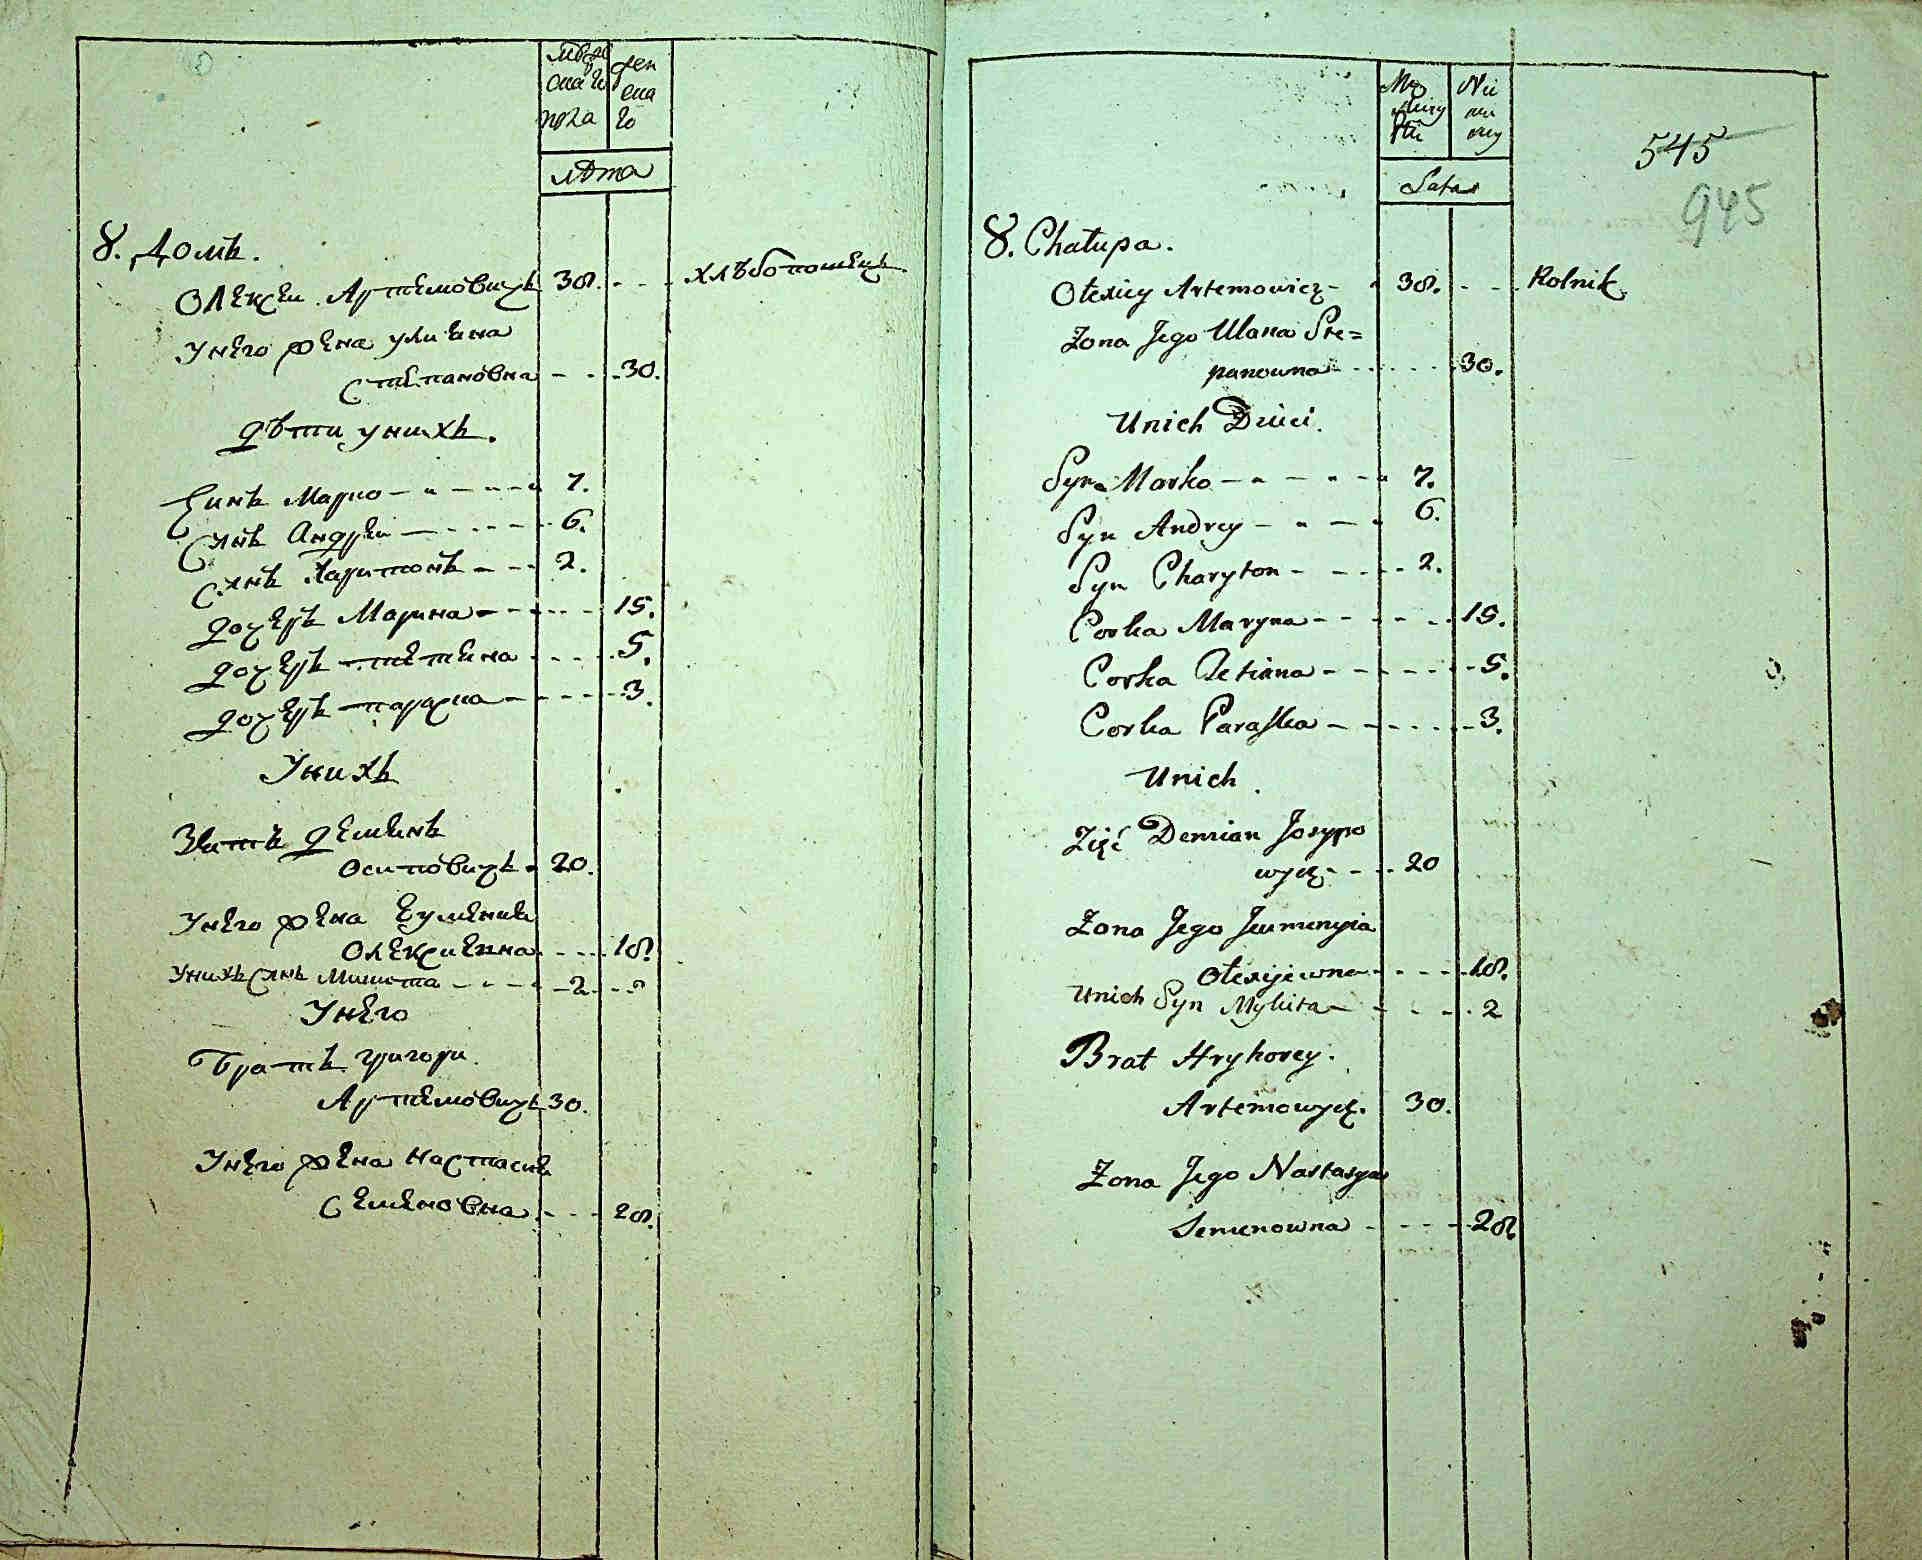 мужеска го пола
женска го
Лѣта
8. Домъ.
Олексеи Артемовичъ 38. хлѣбопошецъ.
Унего жена улияна
Степановна 30.
дѣти унихъ.
Синъ Марко 7.
Синъ Андреи 6.
Синъ Харитонъ 2.
дочеръ Марина 15.
дочеръ тетияна 5.
дочеръ параска 3.
Унихъ
Зять демиянъ
Осиповичъ 20.
Унего жена Еумения
Олексиевна 18.
Унихъ Синъ Микита 2
Унего
Братъ григори
Артемовичъ 30.
Унего жена настасия
Семеновна 28.
Męszczy
Nie
Latas
545
945
8. Chałupa.
Ołexiey Artemowicz 38. Rolnik
Żona Jego Ulana Ste=
panowna 30.
Unich Dzieci.
Syn Marko 7.
Syn Andrey 6.
Syn Charyton 2.
Corka Maryna 15.
Corka Tetiana 5.
Corka Paraska 3.
Unich.
Zięć Demian Josypo
wycz 20
Żona Jego Jeumenyia
Ołexijewna 18.
Unich Syn Mykita 2
Brat Hryhorey.
Artemowycz. 30.
Żona Jego Nastasya
Semenowna 28.